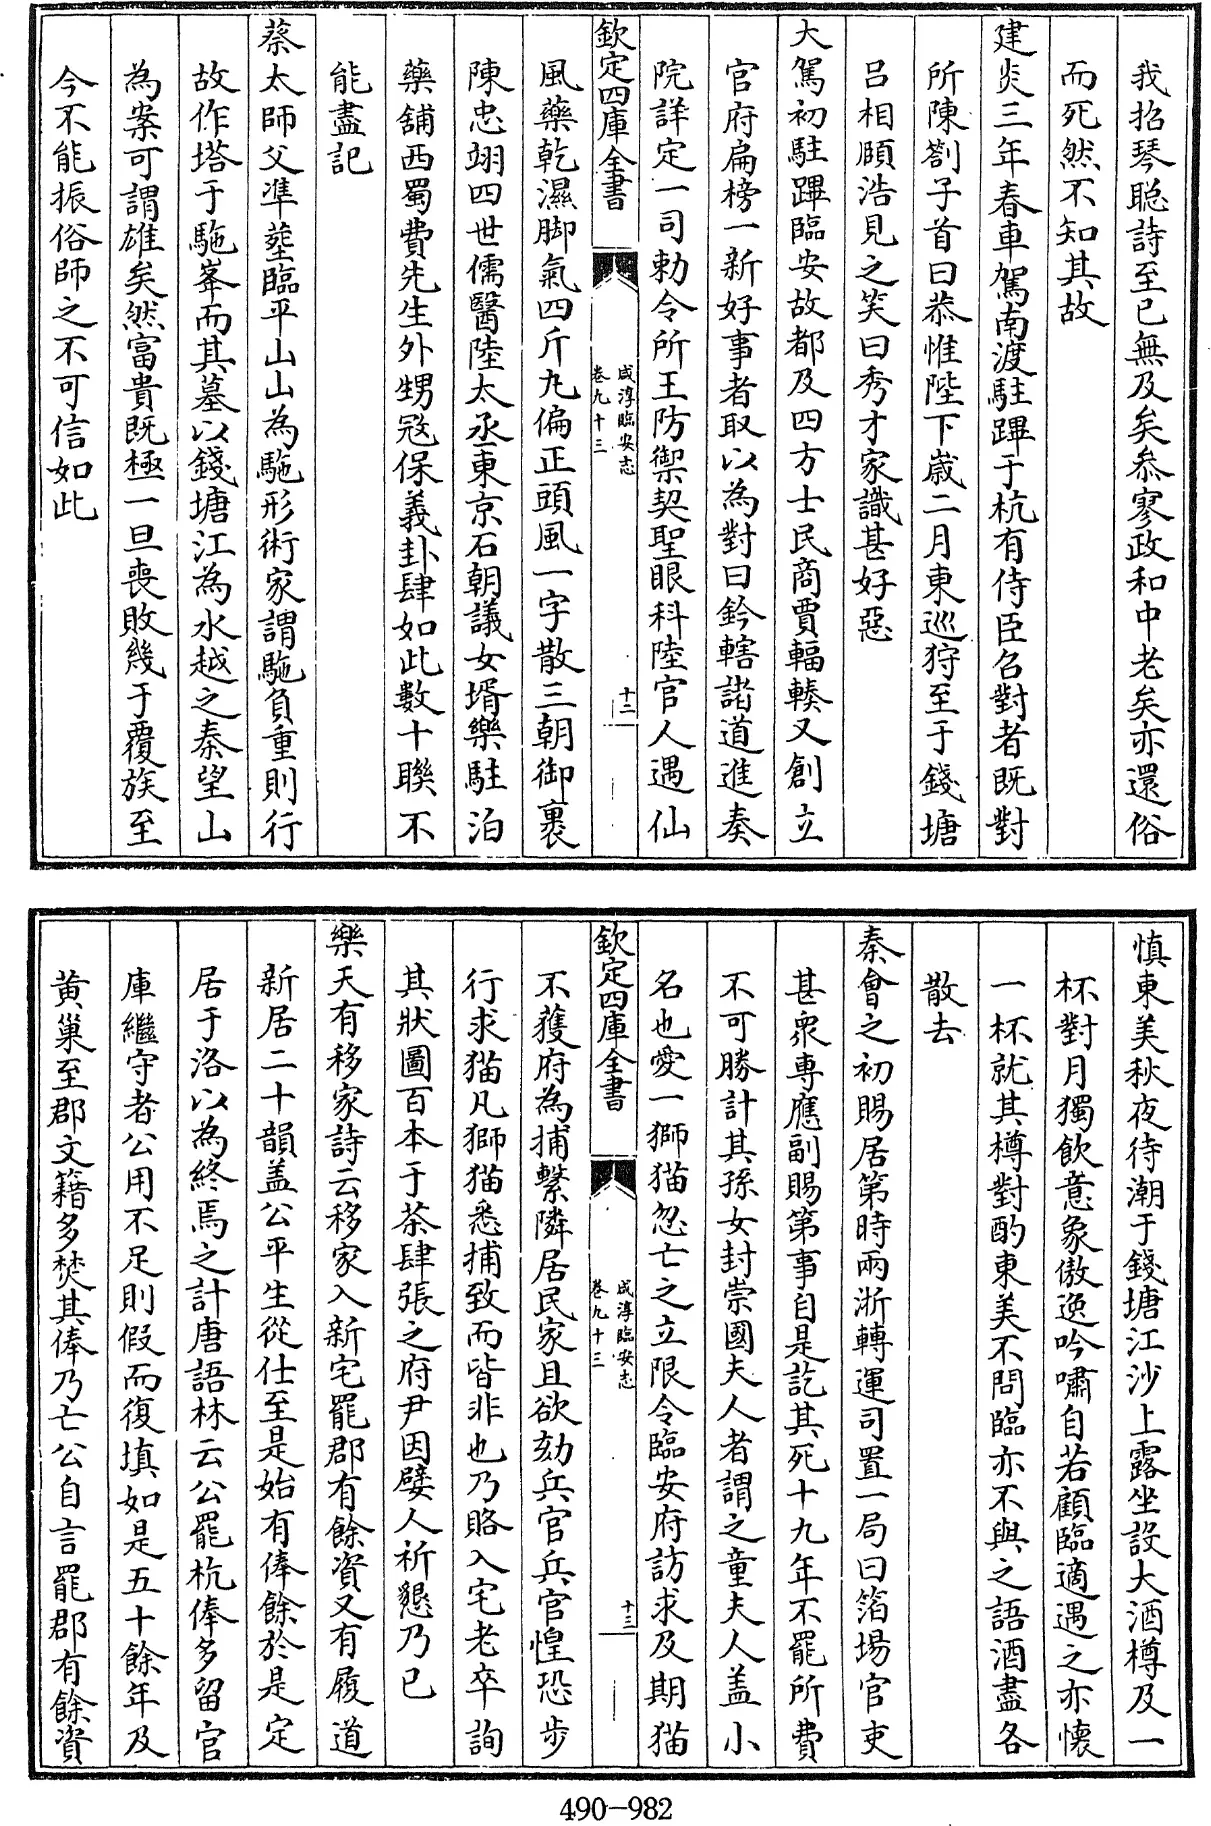 我招琴聡詩至已無及矣叅寥政和中老矣亦還俗
而死然不知其故
建炎三年春車駕南渡駐蹕于杭有侍臣召對者既對
所陳劄子首曰恭惟陛下歲二月東巡狩至于錢塘
吕相頤浩見之笑曰秀才家識甚好惡
大駕初駐蹕臨安故都及四方士民商賈輻輳又創立
官府扁榜一新好事者取以為對曰鈐轄諸道進奏
院詳定一司勅令所王防禦契聖眼科陸官人遇仙
欽定四庫全書
咸淳臨安志
卷九十三
十二
風藥乾濕脚氣四斤九偏正頭風一字散三朝御裹
陳忠翊四世儒醫陸太丞東京石朝議女壻樂駐泊
藥舖西蜀費先生外甥㓂保義卦肆如此數十聯不
能盡記
蔡太師父凖塟臨平山山為駞形術家謂駞負重則行
故作塔于駞峯而其墓以錢塘江為水越之秦望山
為案可謂雄矣然富貴既極一旦喪敗幾于覆族至
今不能振俗師之不可信如此
慎東美秋夜待潮于錢塘江沙上露坐設大酒樽及一
杯對月獨飲意象傲逸吟嘯自若顧臨適遇之亦懐
一杯就其樽對酌東美不問臨亦不與之語酒盡各
散去
秦會之初賜居第時兩浙轉運司置一局曰箔場官吏
甚衆專應副賜第事自是訖其死十九年不罷所費
不可勝計其孫女封崇國夫人者謂之童夫人盖小
名也愛一獅猫忽亡之立限令臨安府訪求及期猫
欽定四庫全書
咸淳臨安志
卷九十三
十三
不獲府為捕繫隣居民家且欲劾兵官兵官惶恐步
行求猫凡獅猫悉捕致而皆非也乃賂入宅老卒詢
其狀圖百本于茶肆張之府尹因嬖人祈懇乃已
樂天有移家詩云移家入新宅罷郡有餘資又有履道
新居二十韻盖公平生從仕至是始有俸餘於是定
居于洛以為終焉之計唐語林云公罷杭俸多留官
庫繼守者公用不足則假而復填如是五十餘年及
黄巢至郡文籍多焚其俸乃亡公自言罷郡有餘資
490-982